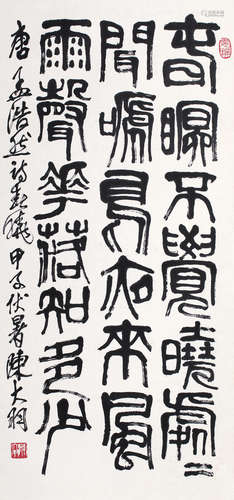 春瞑不覺曉處二
聞嗁鳥夜來風
雨聲花落知多少
唐孟浩然詩春曉 甲子伏暑陳大羽